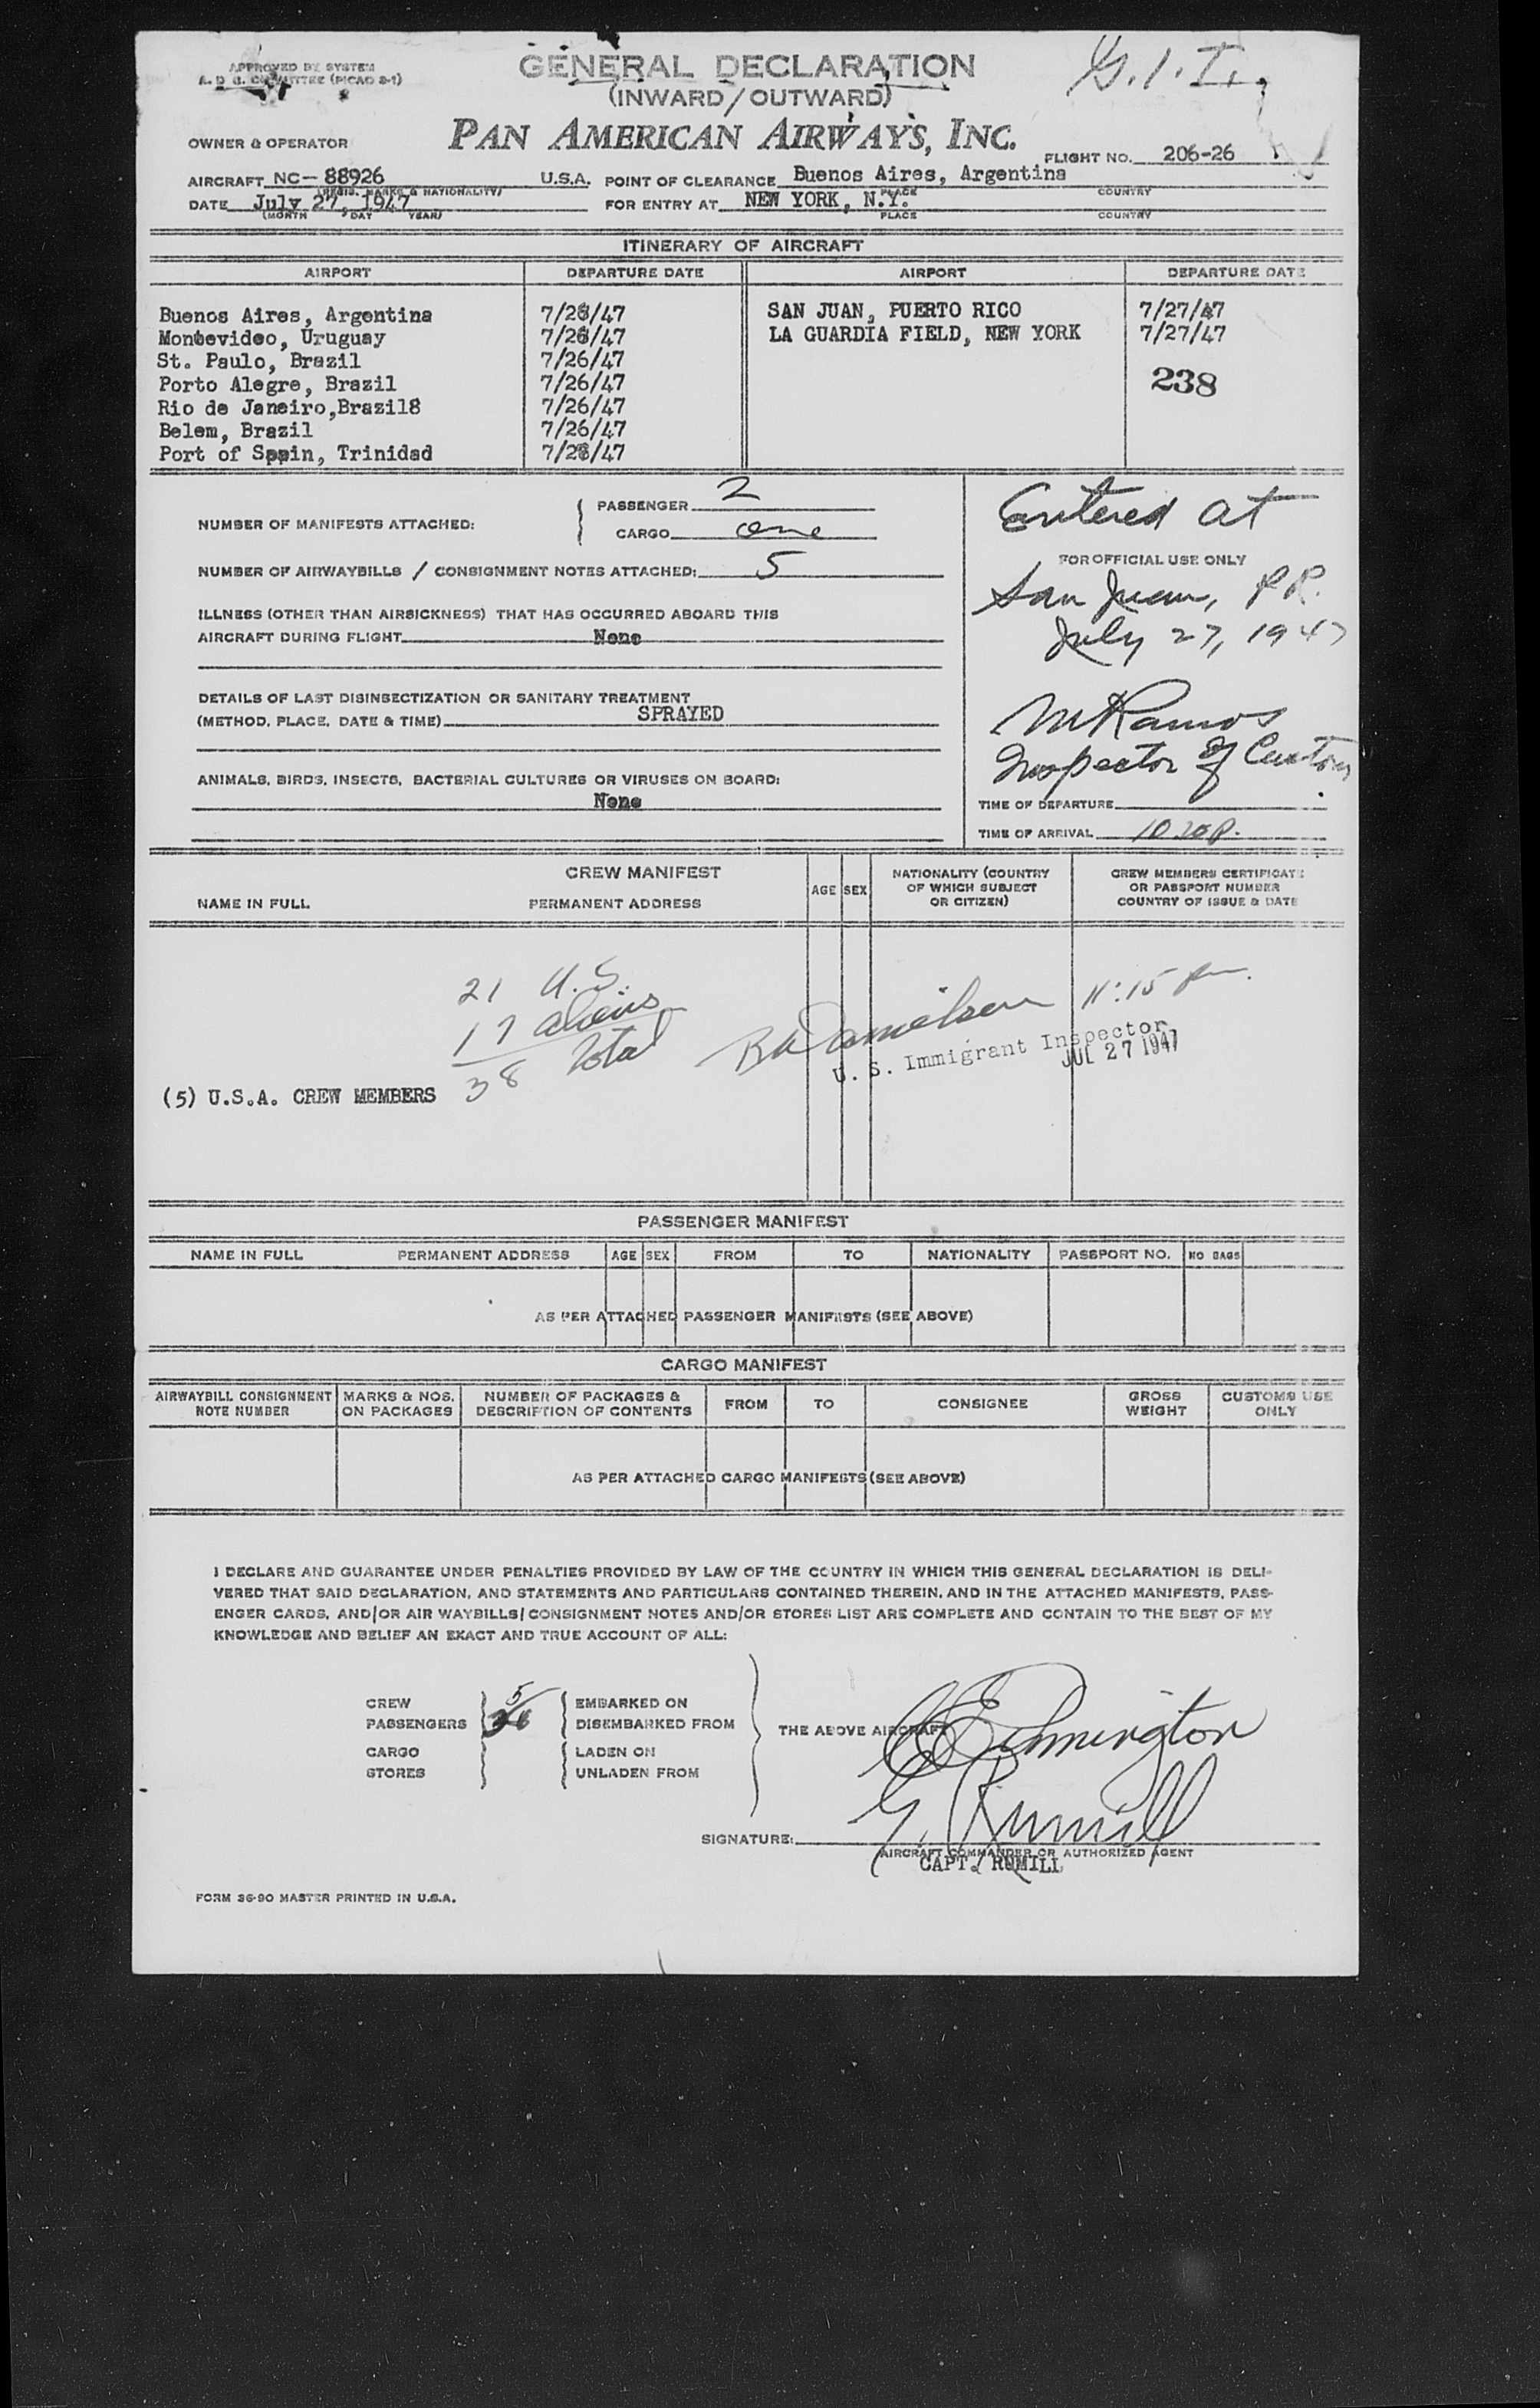 APPROVED BY SYSTEM
A. D. G. COMMITTEE (PICAO 2-1)
G.I.T.
GENERAL DECLARATION
(INWARD/OUTWARD)
PAN AMERICAN AIRWAYS, INC.
OWNER & OPERATOR
FLIGHT NO. 206-26
AIRCRAFT NC-88926 U.S.A. POINT OF CLEARANCE Buenos Aires, Argentina
(REGIS. MARKS & NATIONALITY) PLACE COUNTRY
DATE July 27, 1947 FOR ENTRY AT NEW YORK, N.Y.
(MONTH DAY YEAR) PLACE COUNTRY
ITINERARY OF AIRCRAFT
AIRPORT DEPARTURE DATE AIRPORT DEPARTURE DATE
Buenos Aires, Argentina 7/26/47 SAN JUAN, PUERTO RICO 7/27/47
Montevideo, Uruguay 7/26/47 LA GUARDIA FIELD, NEW YORK 7/27/47
St. Paulo, Brazil 7/26/47
Porto Alegre, Brazil 7/26/47 238
Rio de Janeiro,Brazil8 7/26/47
Belem, Brazil 7/26/47
Port of Spain, Trinidad 7/26/47
NUMBER OF MANIFESTS ATTACHED: PASSENGER 2
CARGO one
NUMBER OF AIRWAYBILLS / CONSIGNMENT NOTES ATTACHED: 5
ILLNESS (OTHER THAN AIRSICKNESS) THAT HAS OCCURRED ABOARD THIS
AIRCRAFT DURING FLIGHT None
DETAILS OF LAST DISINSECTIZATION OR SANITARY TREATMENT
(METHOD, PLACE, DATE & TIME) SPRAYED
ANIMALS, BIRDS, INSECTS, BACTERIAL CULTURES OR VIRUSES ON BOARD:
None
Entered at
FOR OFFICIAL USE ONLY
San Juan, P.R.
July 27, 1947
M Ramos
Inspector of Customs
TIME OF DEPARTURE
TIME OF ARRIVAL 10 20 P.
CREW MANIFEST
NAME IN FULL PERMANENT ADDRESS AGE SEX NATIONALITY (COUNTRY OF WHICH SUBJECT OR CITIZEN) CREW MEMBERS CERTIFICATE OR PASSPORT NUMBER COUNTRY OF ISSUE & DATE
21 U.S.
17 aliens
38 Total
Danielsen 11:15 pm.
U. S. Immigrant Inspector
JUL 27 1947
(5) U.S.A. CREW MEMBERS
PASSENGER MANIFEST
NAME IN FULL PERMANENT ADDRESS AGE SEX FROM TO NATIONALITY PASSPORT NO. NO BAGS
AS PER ATTACHED PASSENGER MANIFESTS (SEE ABOVE)
CARGO MANIFEST
AIRWAYBILL CONSIGNMENT NOTE NUMBER MARKS & NOS. ON PACKAGES NUMBER OF PACKAGES & DESCRIPTION OF CONTENTS FROM TO CONSIGNEE GROSS WEIGHT CUSTOMS USE ONLY
AS PER ATTACHED CARGO MANIFESTS (SEE ABOVE)
I DECLARE AND GUARANTEE UNDER PENALTIES PROVIDED BY LAW OF THE COUNTRY IN WHICH THIS GENERAL DECLARATION IS DELI-
VERED THAT SAID DECLARATION, AND STATEMENTS AND PARTICULARS CONTAINED THEREIN, AND IN THE ATTACHED MANIFESTS, PASS-
ENGER CARDS, AND/OR AIR WAYBILLS/CONSIGNMENT NOTES AND/OR STORES LIST ARE COMPLETE AND CONTAIN TO THE BEST OF MY
KNOWLEDGE AND BELIEF AN EXACT AND TRUE ACCOUNT OF ALL:
CREW 5 EMBARKED ON
PASSENGERS DISEMBARKED FROM
THE ABOVE AIRCRAFT
CARGO LADEN ON
STORES UNLADEN FROM
G. Rumill
SIGNATURE:
AIRCRAFT COMMANDER OR AUTHORIZED AGENT
CAPT. RUMILL
FORM 36-90 MASTER PRINTED IN U.S.A.